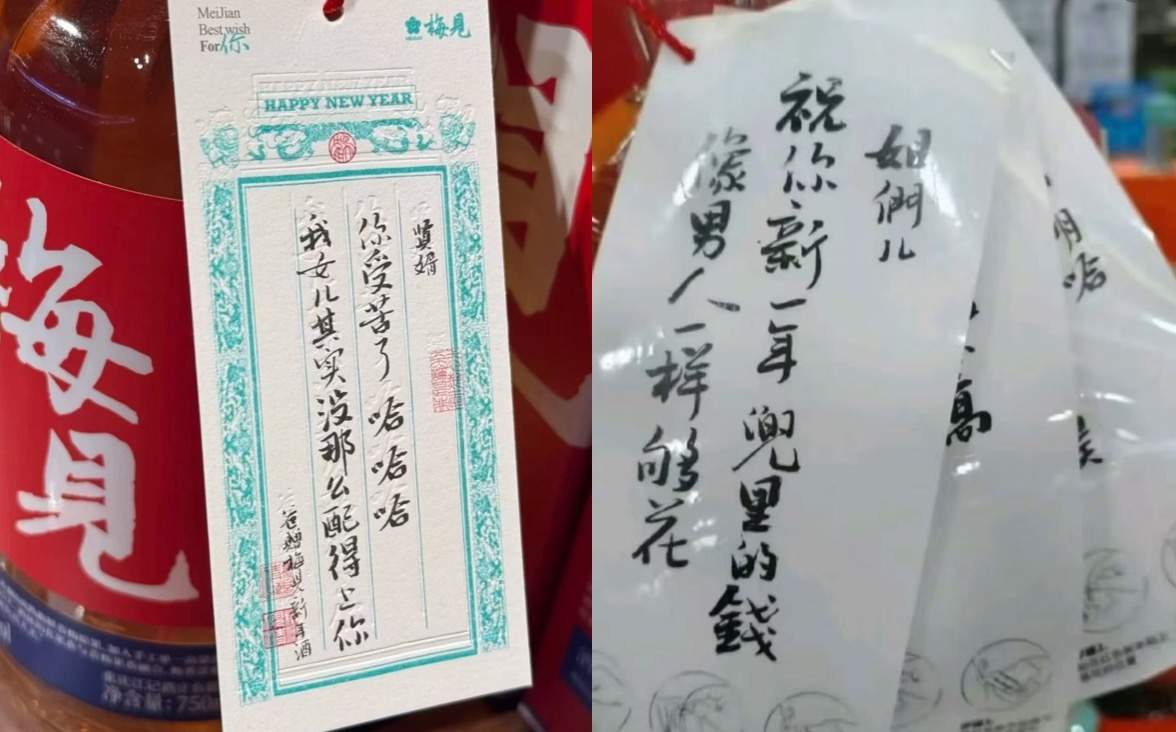 MeiJian
Best wish
For 你
梅見
HAPPY NEW YEAR
賢婿
你受苦了哈哈哈
我女儿其实没那么配得上你
爸贈梅見新年酒
梅見
净含量:750
姐們儿
祝你新一年兜里的錢
像男人一样够花
哈
高